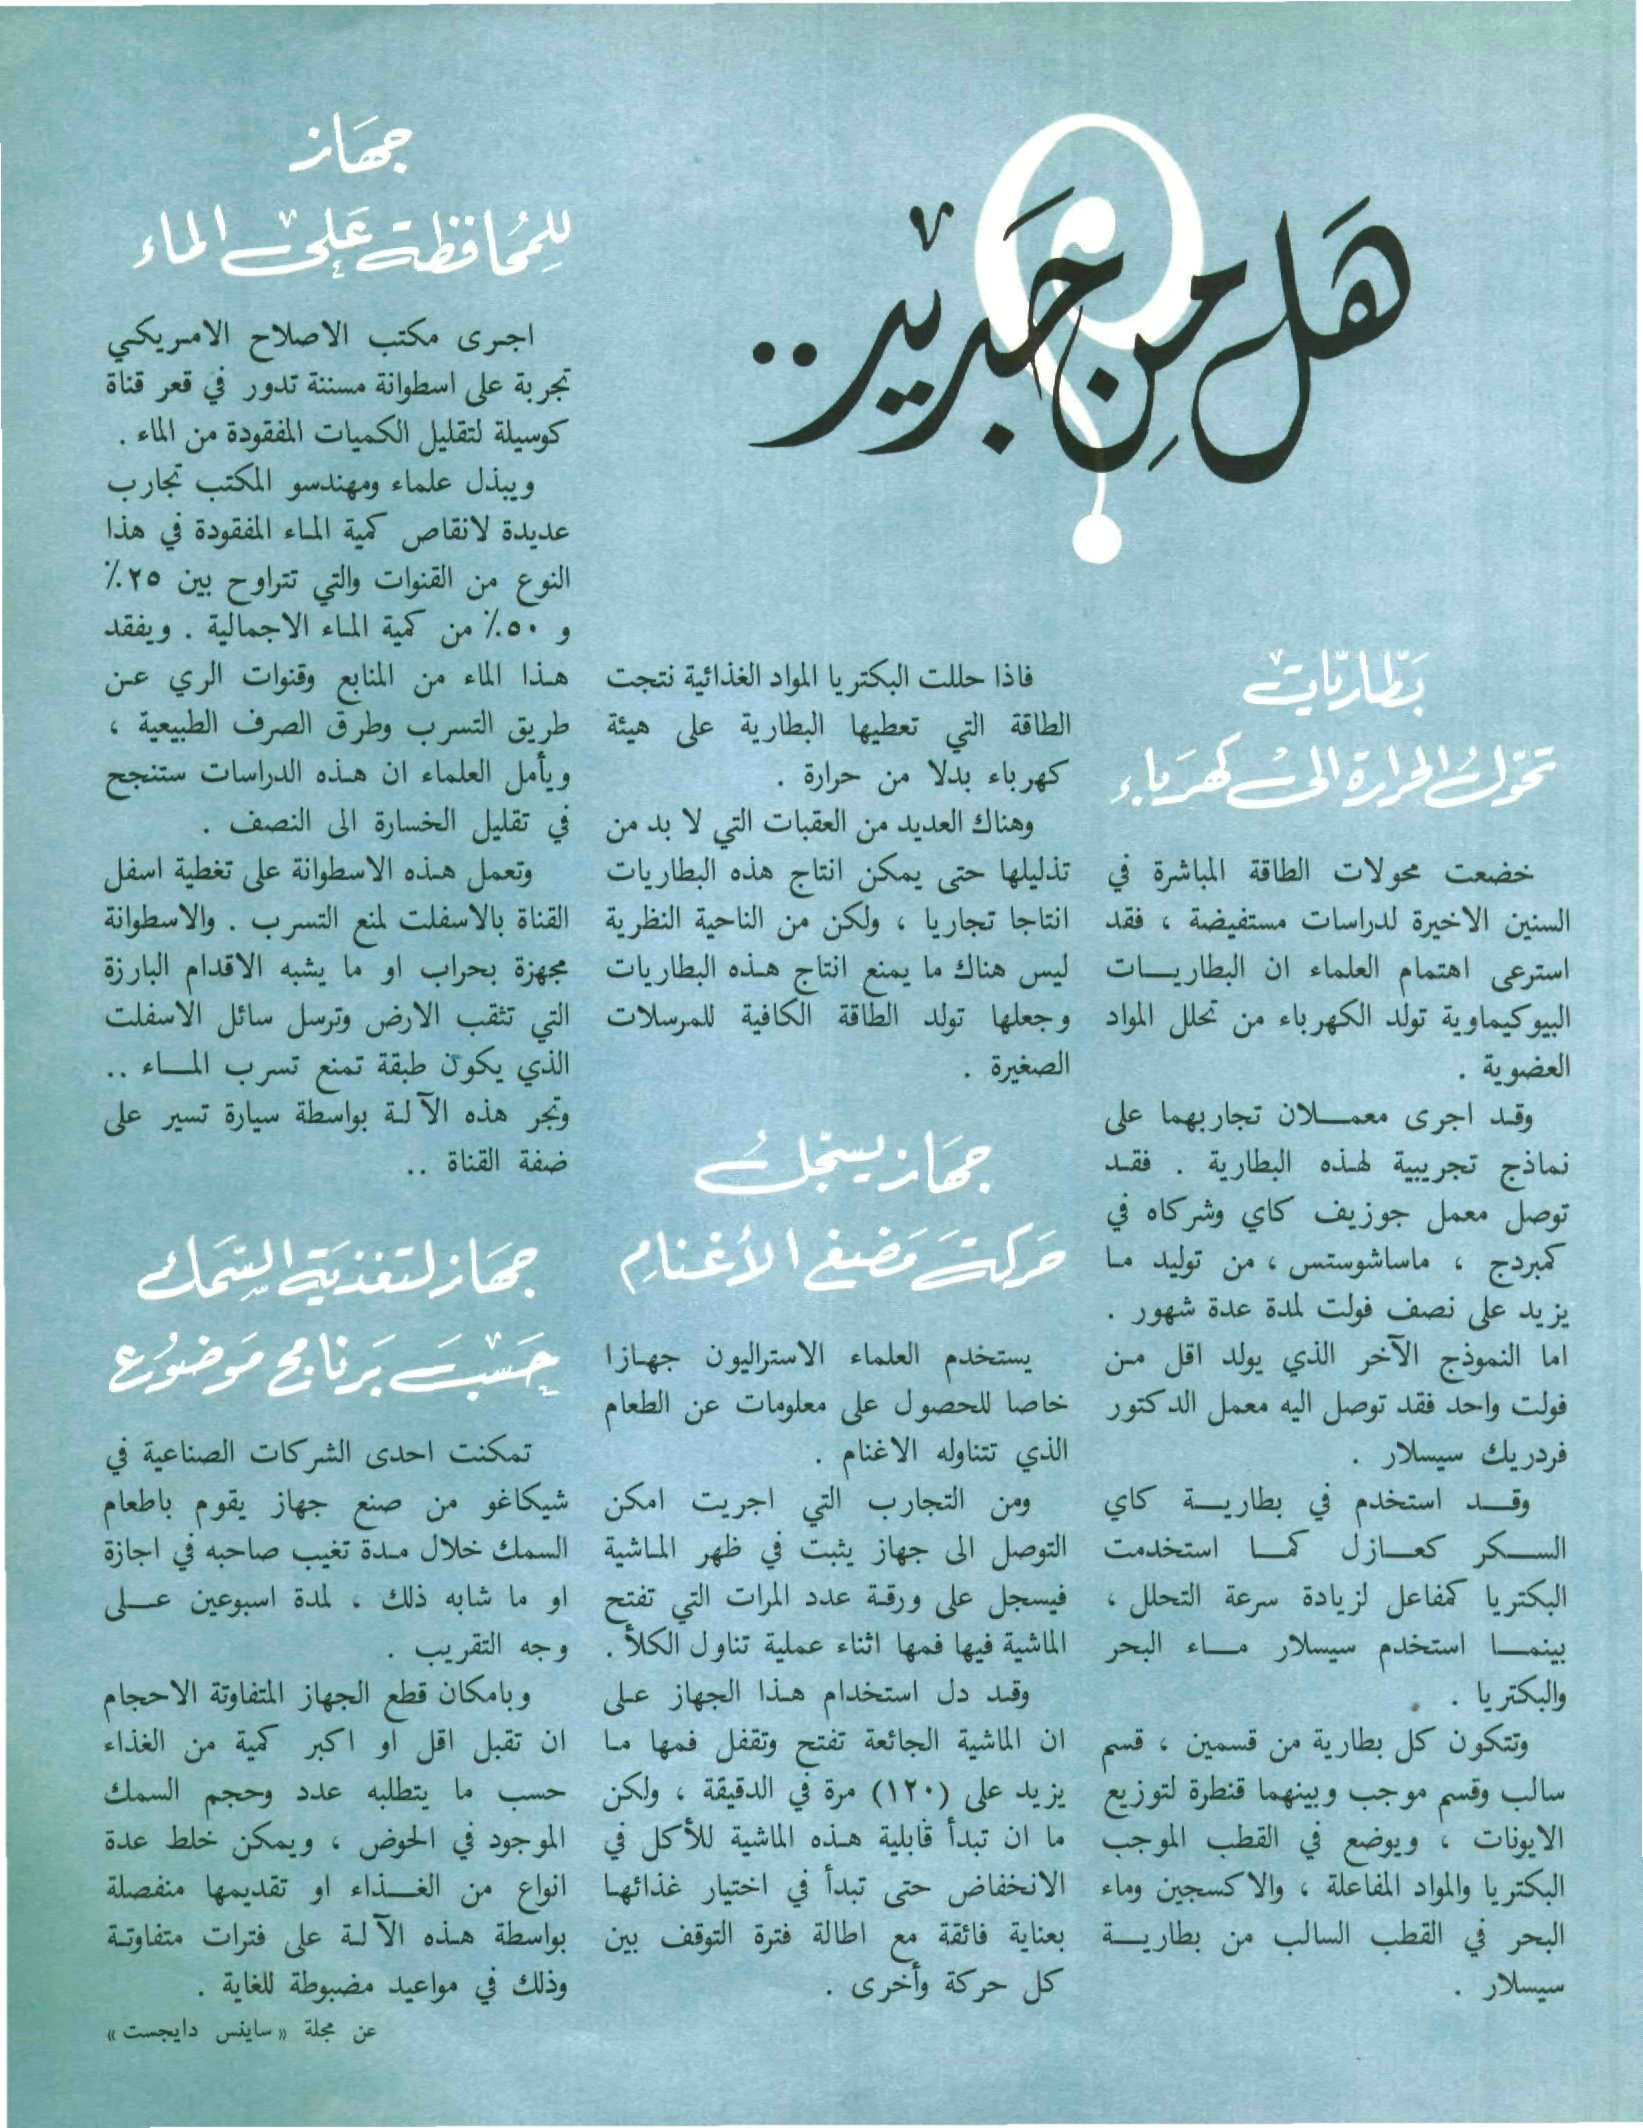 هل من جديد ..
بطاريات
تحول الحرارة الى كهرباء
خضعت محولات الطاقة المباشرة في
السنين الاخيرة لدراسات مستفيضة ، فقد
استرعى اهتمام العلماء ان البطاريات
البيوكيماوية تولد الكهرباء من تحلل المواد
العضوية .
وقد اجرى معملان تجاربهما على
نماذج تجريبية لهذه البطارية . فقد
توصل معمل جوزيف كاي وشركاه في
كمبردج ، ماساشوستس ، من توليد ما
يزيد على نصف فولت لمدة عدة شهور .
اما النموذج الآخر الذي يولد اقل من
فولت واحد فقد توصل اليه معمل الدكتور
فردريك سيسلار .
وقد استخدم في بطارية كاي
السكر كعازل كما استخدمت
البكتريا كمفاعل لزيادة سرعة التحلل ،
بينما استخدم سيسلار ماء البحر
والبكتريا .
وتتكون كل بطارية من قسمين ، قسم
سالب وقسم موجب وبينهما قنطرة لتوزيع
الايونات ، ويوضع في القطب الموجب
البكتريا والمواد المفاعلة ، والاكسجين وماء
البحر في القطب السالب من بطارية
سيسلار .
فاذا حللت البكتريا المواد الغذائية نتجت
الطاقة التي تعطيها البطارية على هيئة
كهرباء بدلا من حرارة .
وهناك العديد من العقبات التي لا بد من
تذليلها حتى يمكن انتاج هذه البطاريات
انتاجا تجاريا ، ولكن من الناحية النظرية
ليس هناك ما يمنع انتاج هذه البطاريات
وجعلها تولد الطاقة الكافية للمرسلات
الصغيرة .
جهاز يسجل
حركة مضغ الأغنام
يستخدم العلماء الاستراليون جهازا
خاصا للحصول على معلومات عن الطعام
الذي تتناوله الاغنام .
ومن التجارب التي اجريت امكن
التوصل الى جهاز يثبت في ظهر الماشية
فيسجل على ورقة عدد المرات التي تفتح
الماشية فيها فمها اثناء عملية تناول الكلأ .
وقد دل استخدام هذا الجهاز على
ان الماشية الجائعة تفتح وتقفل فمها ما
يزيد على (١٢٠) مرة في الدقيقة ، ولكن
ما ان تبدأ قابلية هذه الماشية للأكل في
الانخفاض حتى تبدأ في اختيار غذائها
بعناية فائقة مع اطالة فترة التوقف بين
كل حركة وأخرى .
جهاز
للمحافظة على الماء
اجرى مكتب الاصلاح الامريكي
تجربة على اسطوانة مسننة تدور في قعر قناة
كوسيلة لتقليل الكميات المفقودة من الماء .
ويبذل علماء ومهندسو المكتب تجارب
عديدة لانقاص كمية الماء المفقودة في هذا
النوع من القنوات والتي تتراوح بين ٢٥٪
و ٥٠٪ من كمية الماء الاجمالية . ويفقد
هذا الماء من المنابع وقنوات الري عن
طريق التسرب وطرق الصرف الطبيعية ،
ويأمل العلماء ان هذه الدراسات ستنجح
في تقليل الخسارة الى النصف .
وتعمل هذه الاسطوانة على تغطية اسفل
القناة بالاسفلت لمنع التسرب . والاسطوانة
مجهزة بحراب او ما يشبه الاقدام البارزة
التي تثقب الارض وترسل سائل الاسفلت
الذي يكون طبقة تمنع تسرب الماء ..
وتجر هذه الآلة بواسطة سيارة تسير على
ضفة القناة ..
جهاز لتغذية السمك
حسب برنامج موضوع
تمكنت احدى الشركات الصناعية في
شيكاغو من صنع جهاز يقوم باطعام
السمك خلال مدة تغيب صاحبه في اجازة
او ما شابه ذلك ، لمدة اسبوعين على
وجه التقريب .
وبامكان قطع الجهاز المتفاوتة الاحجام
ان تقبل اقل او اكبر كمية من الغذاء
حسب ما يتطلبه عدد وحجم السمك
الموجود في الحوض ، ويمكن خلط عدة
انواع من الغذاء او تقديمها منفصلة
بواسطة هذه الآلة على فترات متفاوتة
وذلك في مواعيد مضبوطة للغاية .
عن مجلة «ساينس دايجست»